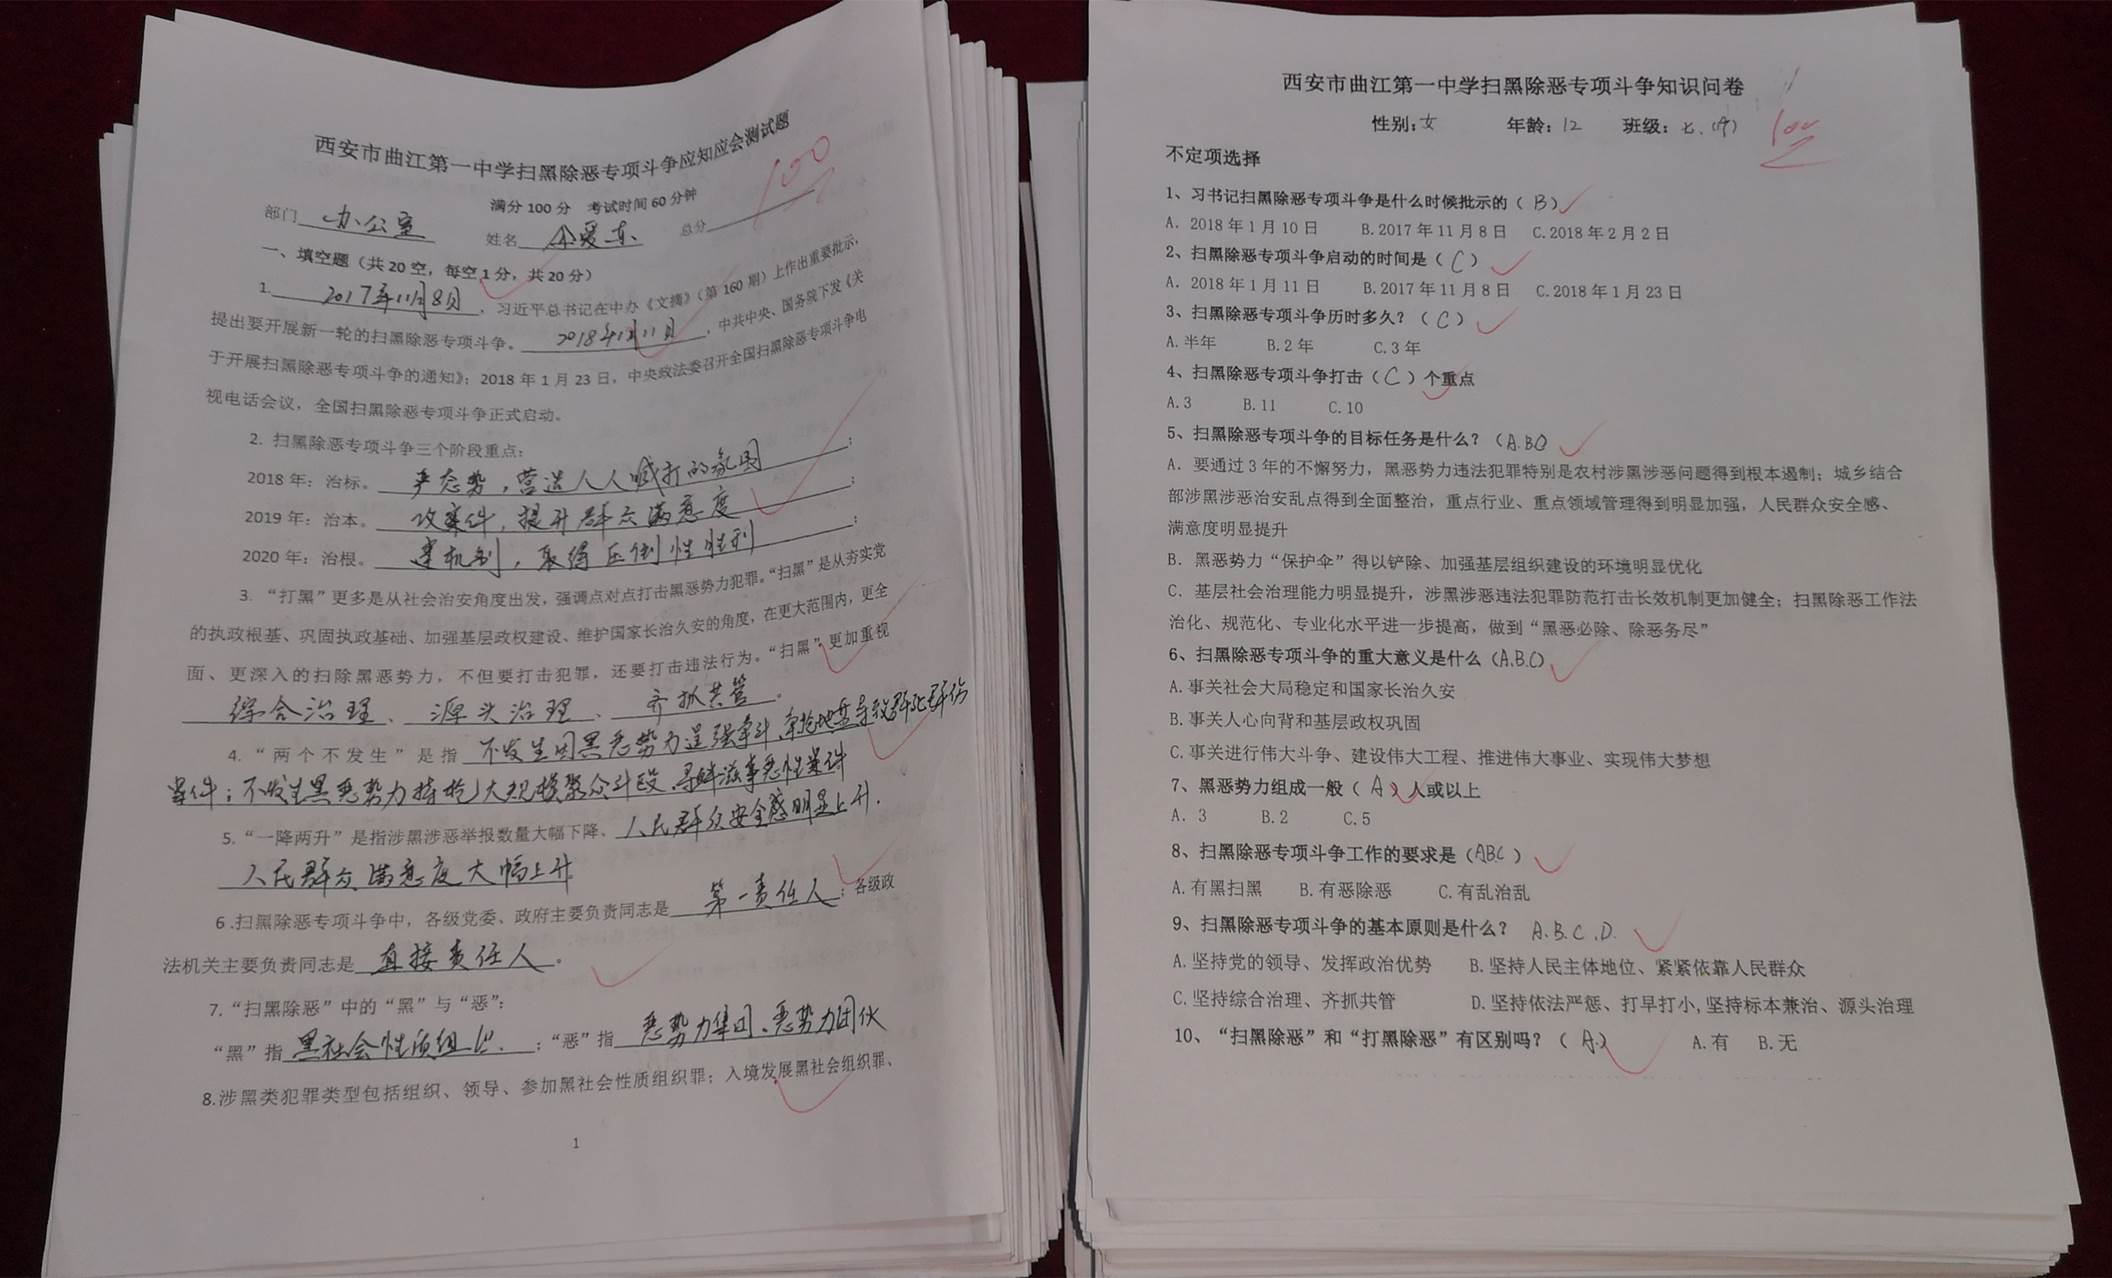 西安市曲江第一中学扫黑除恶专项斗争应知应会测试题
100
满分 100 分 考试时间 60 分钟
部门 办公室 姓名 总分
一、填空题（共 20 空，每空 1 分，共 20 分）
1. 2017年11月8日，习近平总书记在中办《文摘》（第 160 期）上作出重要批示，
提出要开展新一轮的扫黑除恶专项斗争。2018年1月11日，中共中央、国务院下发《关
于开展扫黑除恶专项斗争的通知》；2018 年 1 月 23 日，中央政法委召开全国扫黑除恶专项斗争电
视电话会议，全国扫黑除恶专项斗争正式启动。
2. 扫黑除恶专项斗争三个阶段重点：
2018 年：治标。严态势，营造人人喊打的氛围；
2019 年：治本。攻案件，提升群众满意度；
2020 年：治根。建机制，取得压倒性胜利；
3. “打黑”更多是从社会治安角度出发，强调点对点打击黑恶势力犯罪。“扫黑”是从夯实党
的执政根基、巩固执政基础、加强基层政权建设、维护国家长治久安的角度，在更大范围内，更全
面、更深入的扫除黑恶势力，不但要打击犯罪，还要打击违法行为。“扫黑”更加重视
综合治理、源头治理、齐抓共管。
4. “两个不发生”是指 不发生因黑恶势力逞强争斗、争抢地盘导致群死群伤
案件；不发生黑恶势力持枪、大规模聚众斗殴、寻衅滋事恶性案件
5. “一降两升”是指涉黑涉恶举报数量大幅下降、人民群众安全感明显上升.
人民群众满意度大幅上升
6 .扫黑除恶专项斗争中，各级党委、政府主要负责同志是 第一责任人；各级政
法机关主要负责同志是 直接责任人。
7. “扫黑除恶”中的“黑”与“恶”：
“黑”指 黑社会性质组织、；“恶”指 恶势力集团、恶势力团伙
8.涉黑类犯罪类型包括组织、领导、参加黑社会性质组织罪；入境发展黑社会组织罪、
1
西安市曲江第一中学扫黑除恶专项斗争知识问卷
100
性别：女 年龄：12 班级：七.
不定项选择
1、习书记扫黑除恶专项斗争是什么时候批示的（ B ）
A. 2018 年 1 月 10 日 B.2017 年 11 月 8 日 C.2018 年 2 月 2 日
2、扫黑除恶专项斗争启动的时间是（ C ）
A. 2018 年 1 月 11 日 B.2017 年 11 月 8 日 C.2018 年 1 月 23 日
3、扫黑除恶专项斗争历时多久？（ C ）
A.半年 B.2 年 C.3 年
4、扫黑除恶专项斗争打击（ C ）个重点
A.3 B.11 C.10
5、扫黑除恶专项斗争的目标任务是什么？（A.B.C）
A. 要通过 3 年的不懈努力，黑恶势力违法犯罪特别是农村涉黑涉恶问题得到根本遏制；城乡结合
部涉黑涉恶治安乱点得到全面整治，重点行业、重点领域管理得到明显加强，人民群众安全感、
满意度明显提升
B. 黑恶势力“保护伞”得以铲除、加强基层组织建设的环境明显优化
C. 基层社会治理能力明显提升，涉黑涉恶违法犯罪防范打击长效机制更加健全；扫黑除恶工作法
治化、规范化、专业化水平进一步提高，做到“黑恶必除、除恶务尽”
6、扫黑除恶专项斗争的重大意义是什么（A.B.C）
A.事关社会大局稳定和国家长治久安
B.事关人心向背和基层政权巩固
C.事关进行伟大斗争、建设伟大工程、推进伟大事业、实现伟大梦想
7、黑恶势力组成一般（ A ）人或以上
A. 3 B.2 C.5
8、扫黑除恶专项斗争工作的要求是（ABC ）
A.有黑扫黑 B.有恶除恶 C.有乱治乱
9、扫黑除恶专项斗争的基本原则是什么？ A.B.C.D.
A.坚持党的领导、发挥政治优势 B.坚持人民主体地位、紧紧依靠人民群众
C.坚持综合治理、齐抓共管 D.坚持依法严惩、打早打小,坚持标本兼治、源头治理
10、“扫黑除恶”和“打黑除恶”有区别吗？（ A. ） A.有 B.无